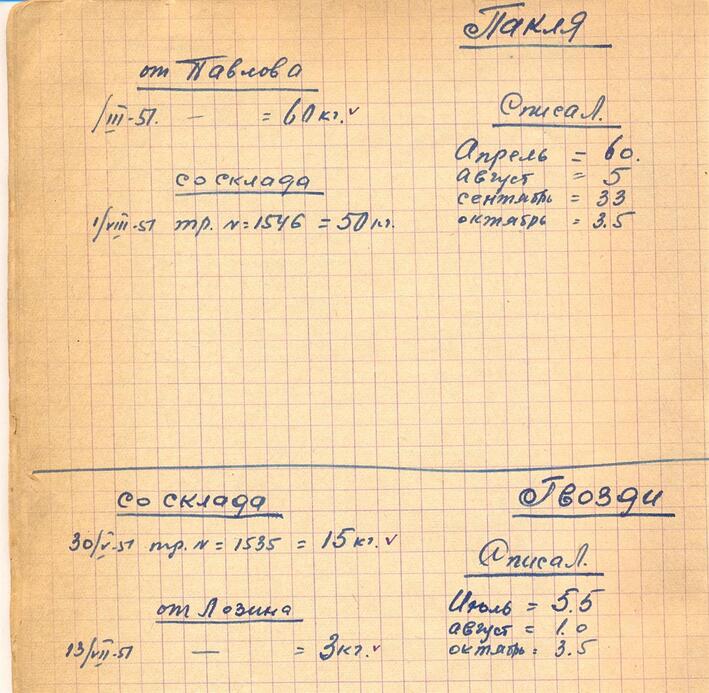 Пакля
от Павлова
1/III-51. — = 60 кг. v
со склада
1/VIII-51 тр. N=1546 = 50 кг.
Списал.
Апрель = 60.
август = 5
сентябрь = 33
октябрь = 3.5
Гвозди
со склада
30/V-51 тр. N = 1535 = 15 кг. v
от Лозина
13/VII-51 — = 3 кг. v
Списал.
Июль = 5.5
август = 1.0
октябрь = 3.5